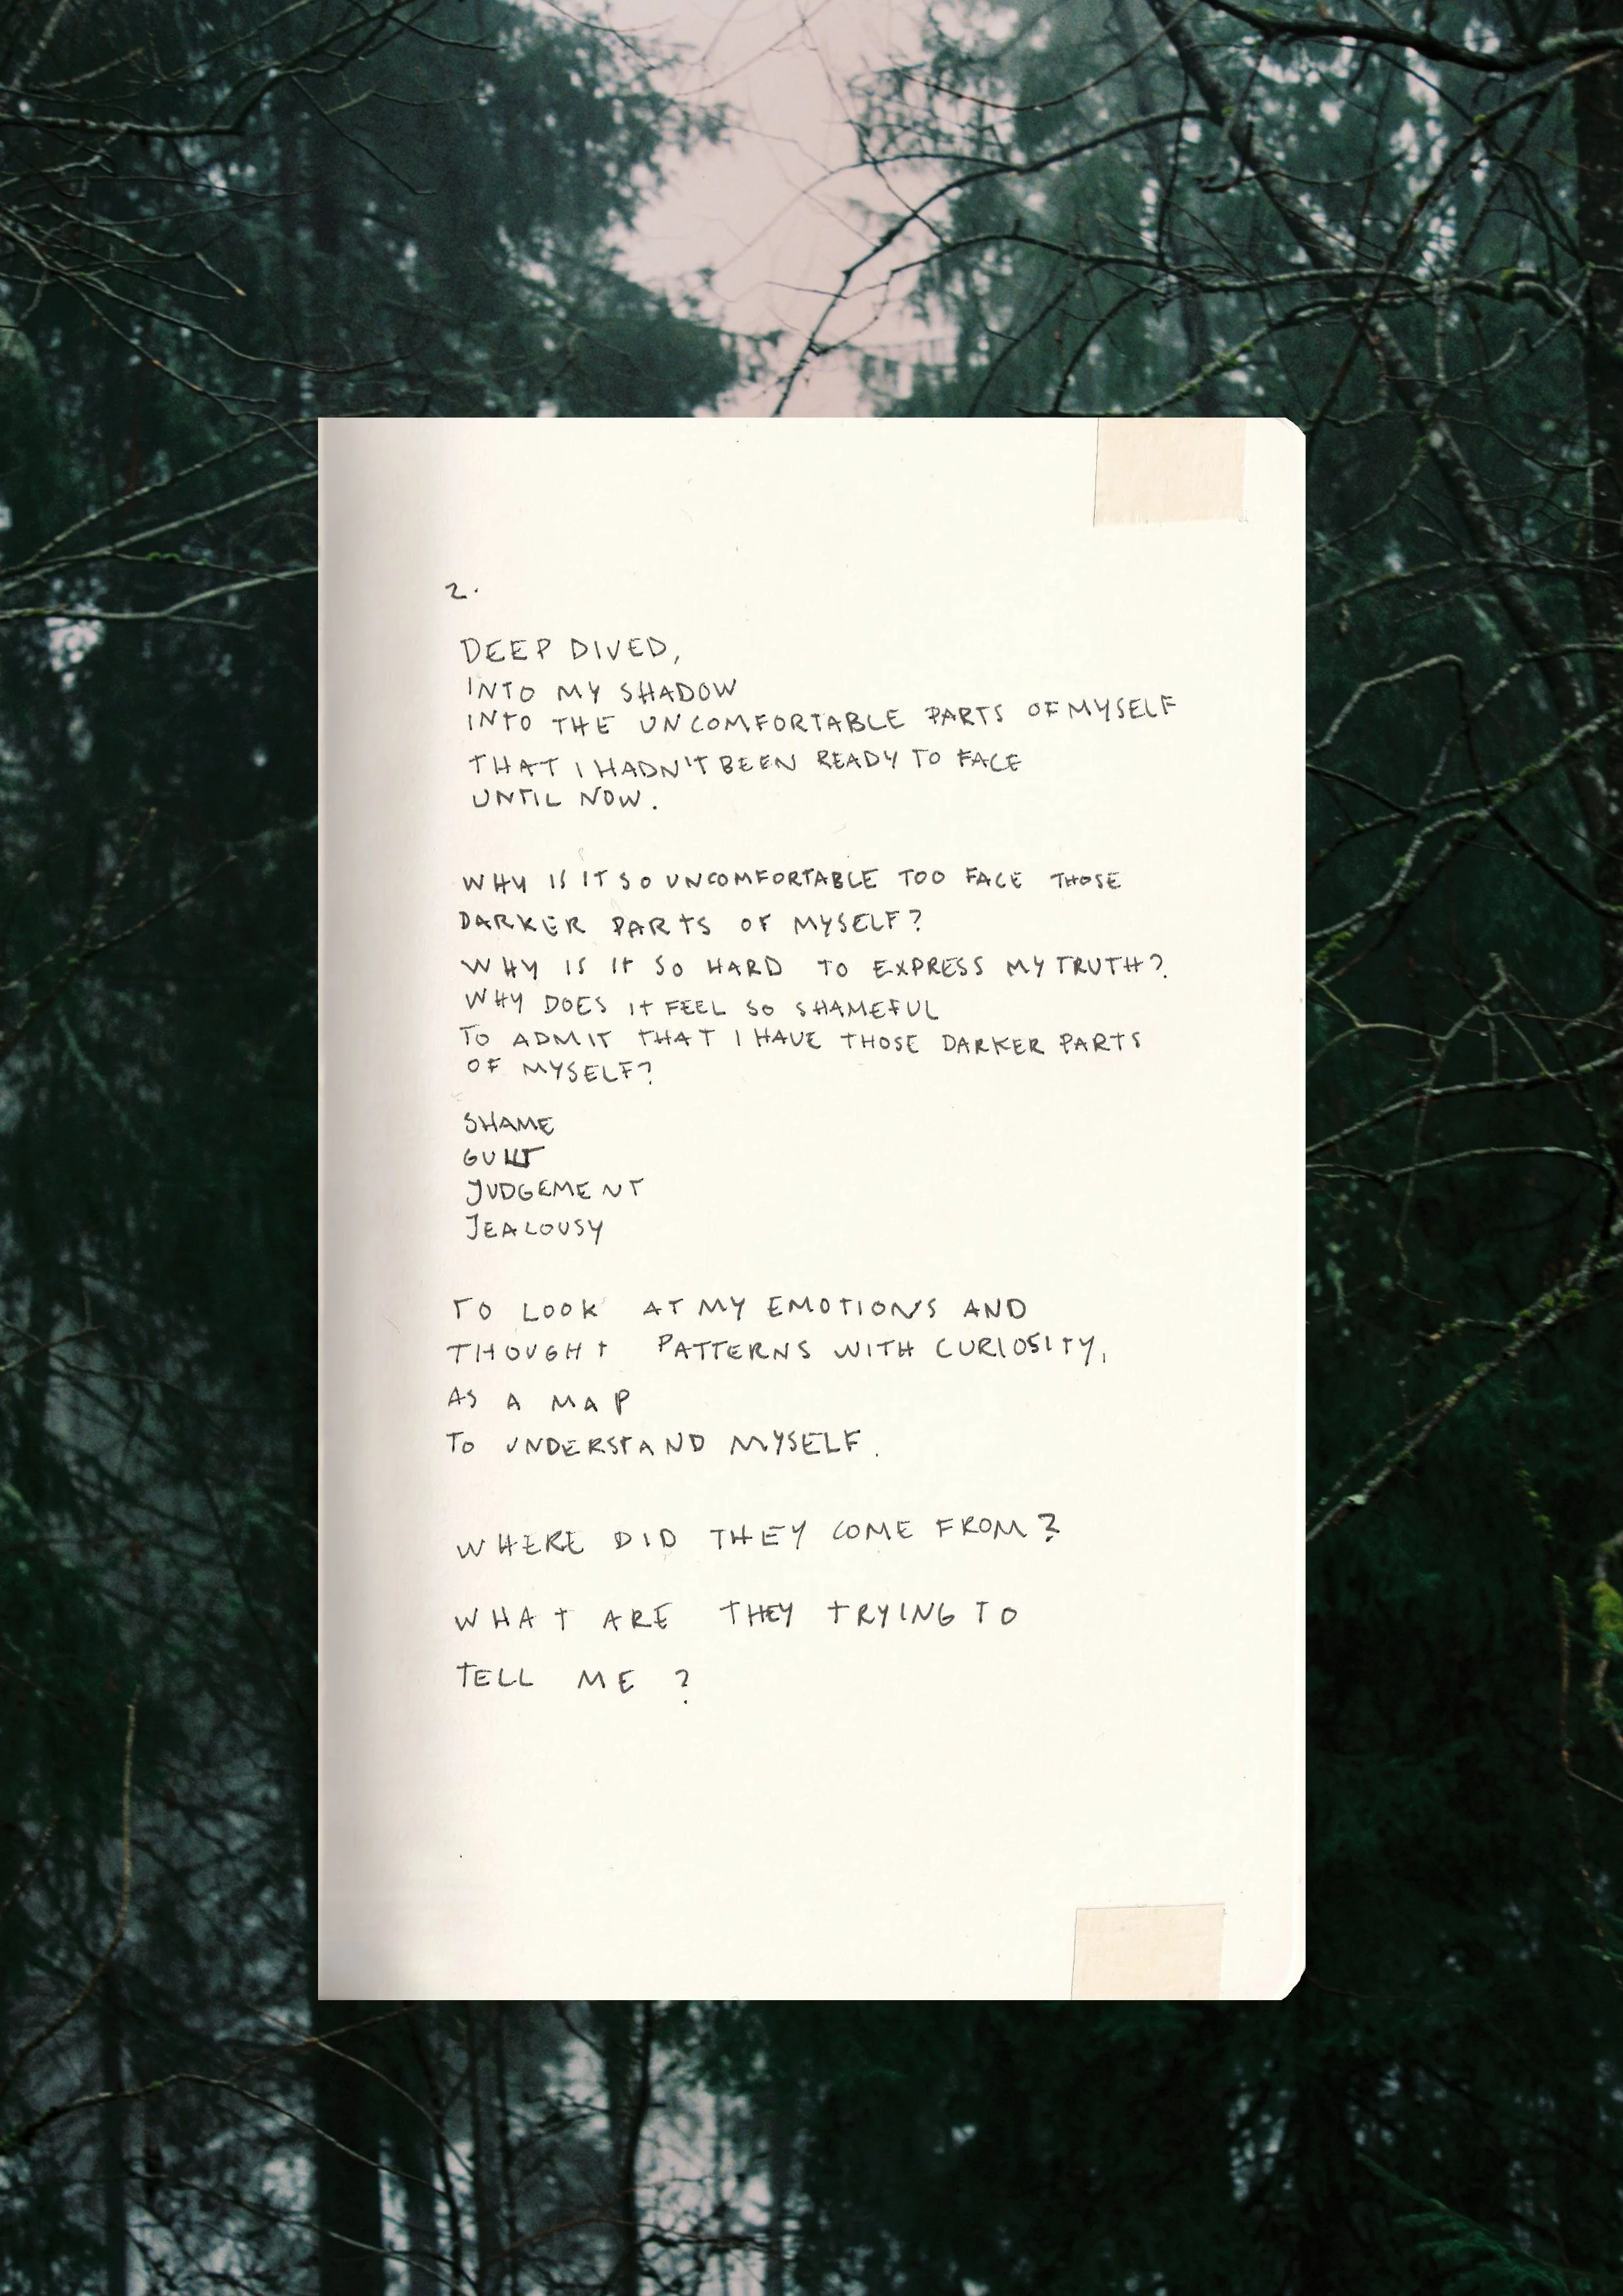 2.
DEEP DIVED,
INTO MY SHADOW
INTO THE UNCOMFORTABLE PARTS OF MYSELF
THAT I HADN'T BEEN READY TO FACE
UNTIL NOW.
WHY IS IT SO UNCOMFORTABLE TOO FACE THOSE
DARKER PARTS OF MYSELF?
WHY IS IT SO HARD TO EXPRESS MY TRUTH?
WHY DOES IT FEEL SO SHAMEFUL
TO ADMIT THAT I HAVE THOSE DARKER PARTS
OF MYSELF?
SHAME
GUILT
JUDGEMENT
JEALOUSY
TO LOOK AT MY EMOTIONS AND
THOUGHT PATTERNS WITH CURIOSITY,
AS A MAP
TO UNDERSTAND MYSELF.
WHERE DID THEY COME FROM?
WHAT ARE THEY TRYING TO
TELL ME?